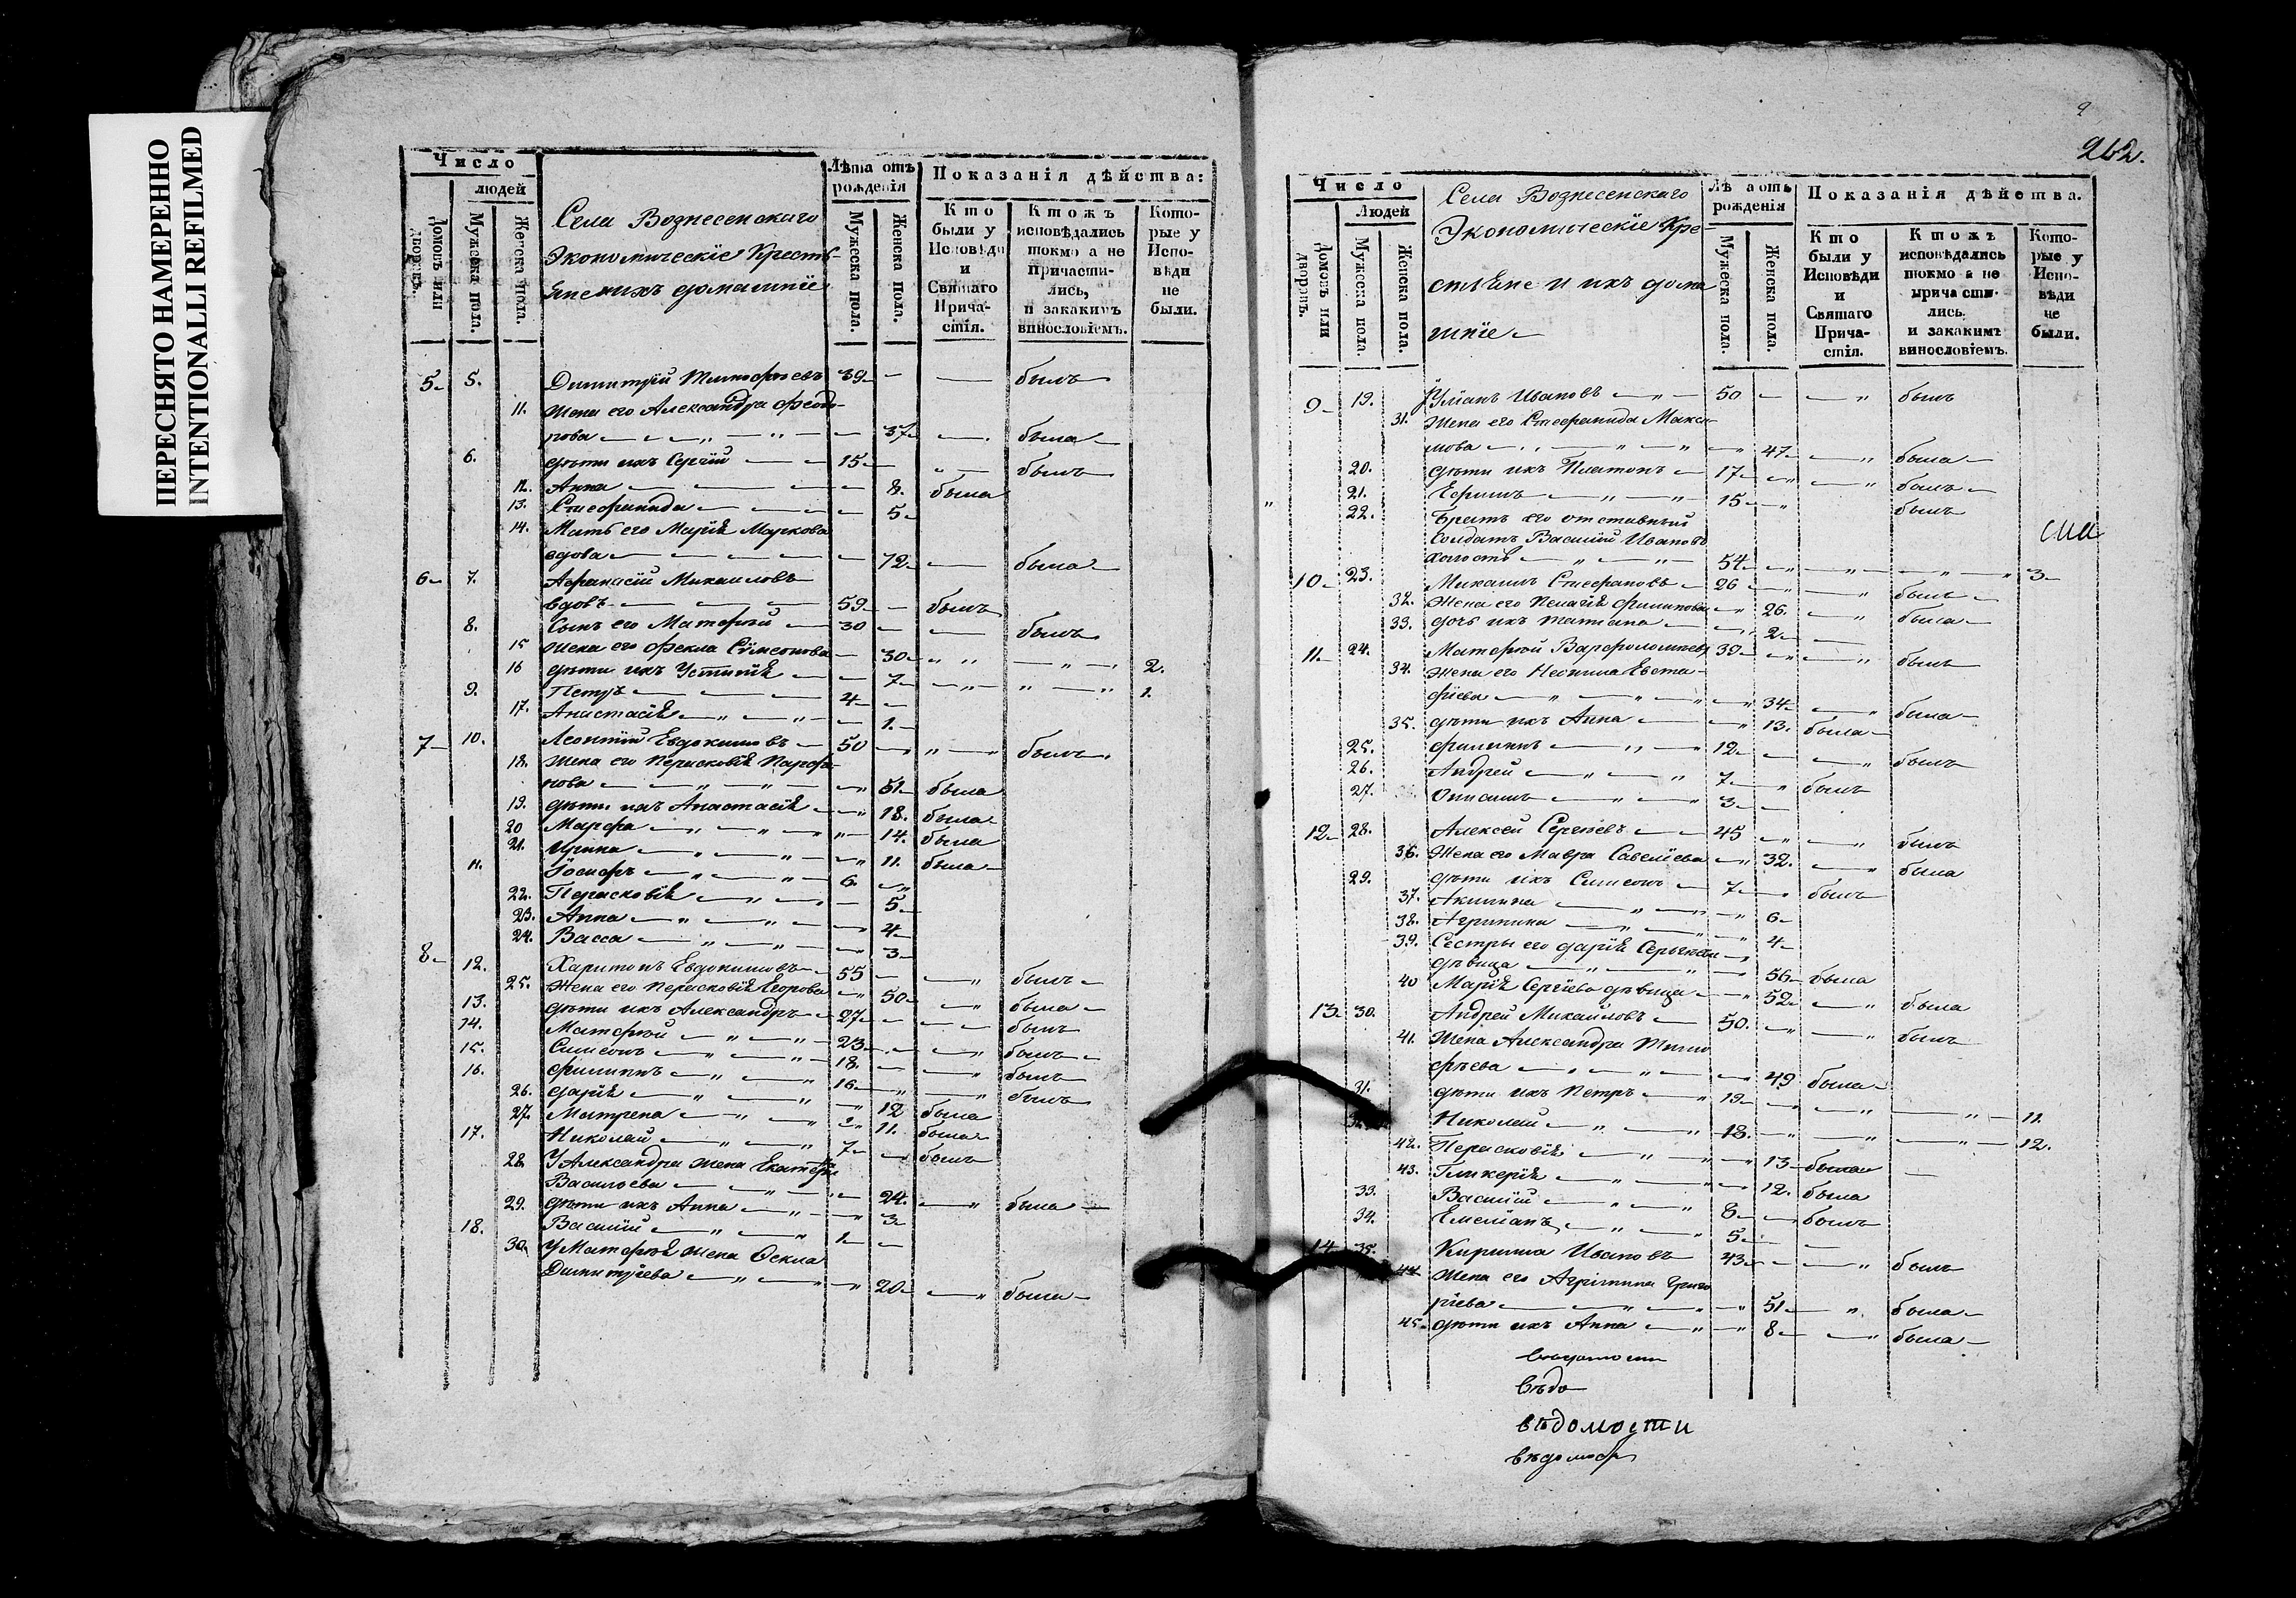 ПЕРЕСНЯТО НАМЕРЕННО
INTENTIONALLI REFILMED
Число
людей
Домовъ или дворовъ.
Мужеска пола.
Женска пола.
Села Вознесенскаго
Экономическіе Кресть-
яне и ихъ домашніе
Лѣта отъ рожденія
Мужеска пола.
Женска пола.
Показанія дѣйства:
Кто были у Исповѣди и Святаго Прича- стія.
Ктожъ исповѣдались токмо а не причасти- лись, и закакимъ винословіемъ.
Кото- рые у Испо- вѣди не были.
5 5. Димитрій Тимофѣевъ 39 былъ
11. Жена его Александра Феодо-
рова 37 была
6. Дѣти ихъ Сергій 15 былъ
12. Анна 8. была
13. Стефанида 5
14. Мать его Марія Маркова
вдова 72 была
6 7. Афанасій Михаиловъ
вдовъ 59 былъ
8. Сынъ его Матфей 30 былъ
15 Жена его Фекла Симеонова 30 2.
16 Дѣти ихъ Устинія 7 1.
9. Петръ 4
17. Анастасія 1.
7 10. Леонтій Евдокимовъ 50 былъ
18. Жена его Парасковія Парфе-
нова 51 была
19. Дѣти ихъ Анастасія 18. была
20 Марфа 14. была
21. Ирина 11. была
11. Іосифъ 6.
22. Парасковія 5
23. Анна 4
24. Васса 3
8 12. Харитонъ Евдокимовъ 55 былъ
25. Жена его Парасковія Егорова 50 была
13. Дѣти ихъ Александръ 27 былъ
14. Матфей 23 былъ
15. Симеонъ 18. былъ
16. Филиппъ 16 былъ
26. Дарія 12 была
27. Матрена 11. была
17. Николай 7 былъ
28. У Александра жена Екатери
Васильева 24. была
29. Дѣти ихъ Анна 3
18. Василій 1
30. У Матфея жена Фекла
Димитріева 20 была
9
262.
Число
Людей
Домовъ или дворовъ.
Мужеска пола.
Женска пола.
Села Вознесенскаго
Экономическіе Кре-
стьяне и ихъ дома
шніе
Лѣта отъ рожденія
Мужеска пола.
Женска пола.
Показанія дѣйства.
Кто были у Исповѣди и Святаго Прича- стія.
Ктожъ исповѣдались токмо а не причасти- лись. и закакимъ винословіемъ.
Кото- рые у Испо- вѣди не были.
9 19. Іуліанъ Ивановъ 50 былъ
31. Жена его Стефанида Макси-
мова 47 была
20. Дѣти ихъ Платонъ 17 былъ
21. Ефимъ 15 былъ
22. Братъ его отставный
Солдатъ Василій Ивановъ
холостъ 54 3
10 23. Михаилъ Стефановъ 26 былъ
32. Жена его Пелагія Филиппова 26. была
33. Дочь ихъ Татиана 2
11. 24. Матфей Варфоломеевъ 39 былъ
34. Жена его Неонила Евста-
фіева 34 была
35. Дѣти ихъ Анна 13. была
25. Филиппъ 12 былъ
26. Андрей 7 былъ
27. Онисимъ 3
12 28. Алексей Сергѣевъ 45 былъ
36. Жена его Мавра Савеліева 32. была
29. Дѣти ихъ Симеонъ 7 былъ
37. Акилина 6
38. Агрипина 4
39. Сестры его Дарія Сергѣева
дѣвица 56 была
40 Марія Сергіева дѣвица 52 была
13 30. Андрей Михайловъ 50. былъ
41. Жена Александра Тимо
фѣева 49 была
31. Дѣти ихъ Петръ 19 11.
32. Николай 18. 12.
42. Парасковія 13 была
43. Гликерія 12. была
33. Василій 8 былъ
34. Емеліанъ 5
14 35. Кирилла Ивановъ 43 былъ
44 Жена его Агрипина Григо
ріева 51 была
45 Дѣти ихъ Анна 8 была
вѣдо
вѣдомости